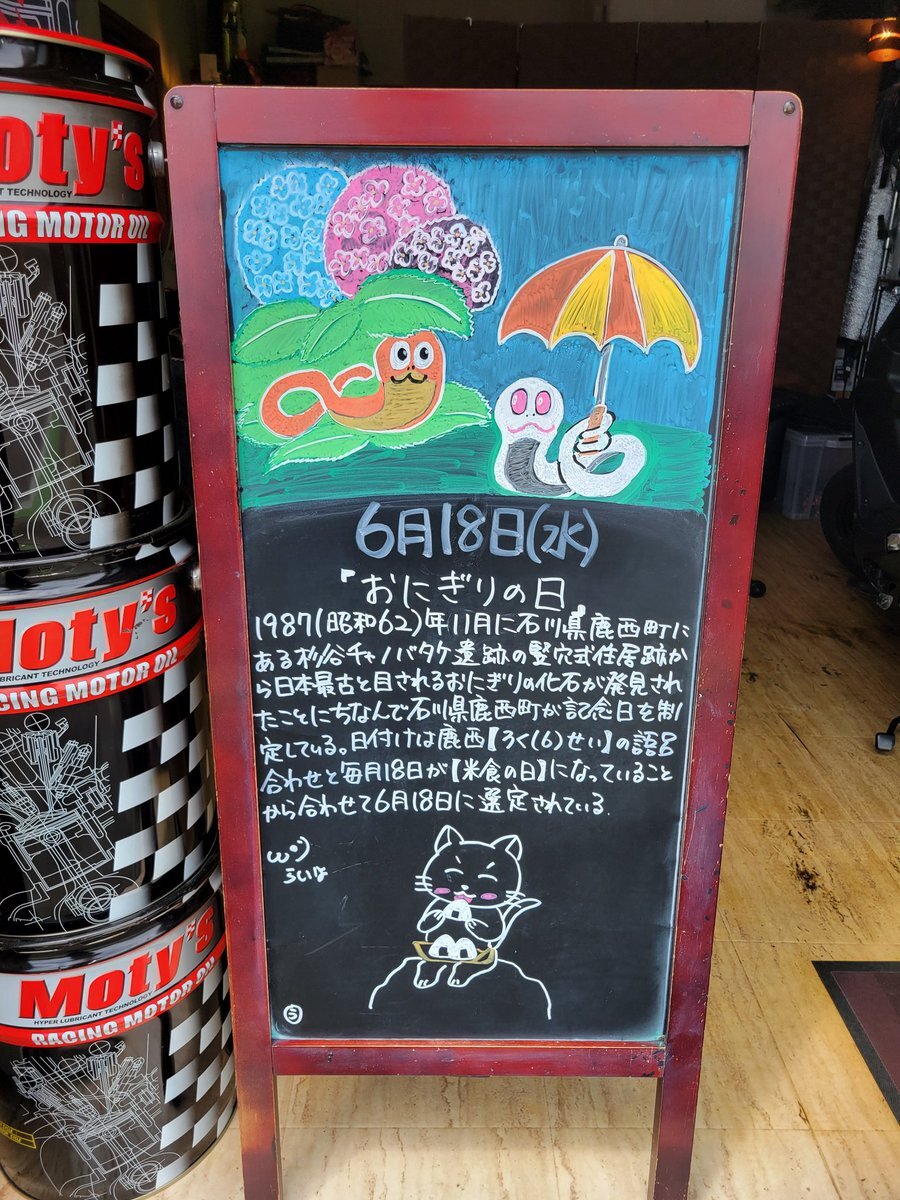 Moty's
RICANT TECHNOLOGY
ING MOTOR OIL
Moty's
LUBRICANT TECHNOLOGY
CING MOTOR OIL
Moty's
HYPER LUBRICANT TECHNOLOGY
RACING MOTOR OIL
6月18日(水)
『おにぎりの日』
1987(昭和62)年11月に石川県鹿西町に
ある杉谷チャノバタケ遺跡の竪穴式住居跡か
ら日本最古と目されるおにぎりの化石が発見され
たことにちなんで石川県鹿西町が記念日を制
定している。日付けは鹿西【ろく(6)せい】の語呂
合わせと毎月18日が【米食の日】になっていること
から合わせて6月18日に選定されている.
らいな
う